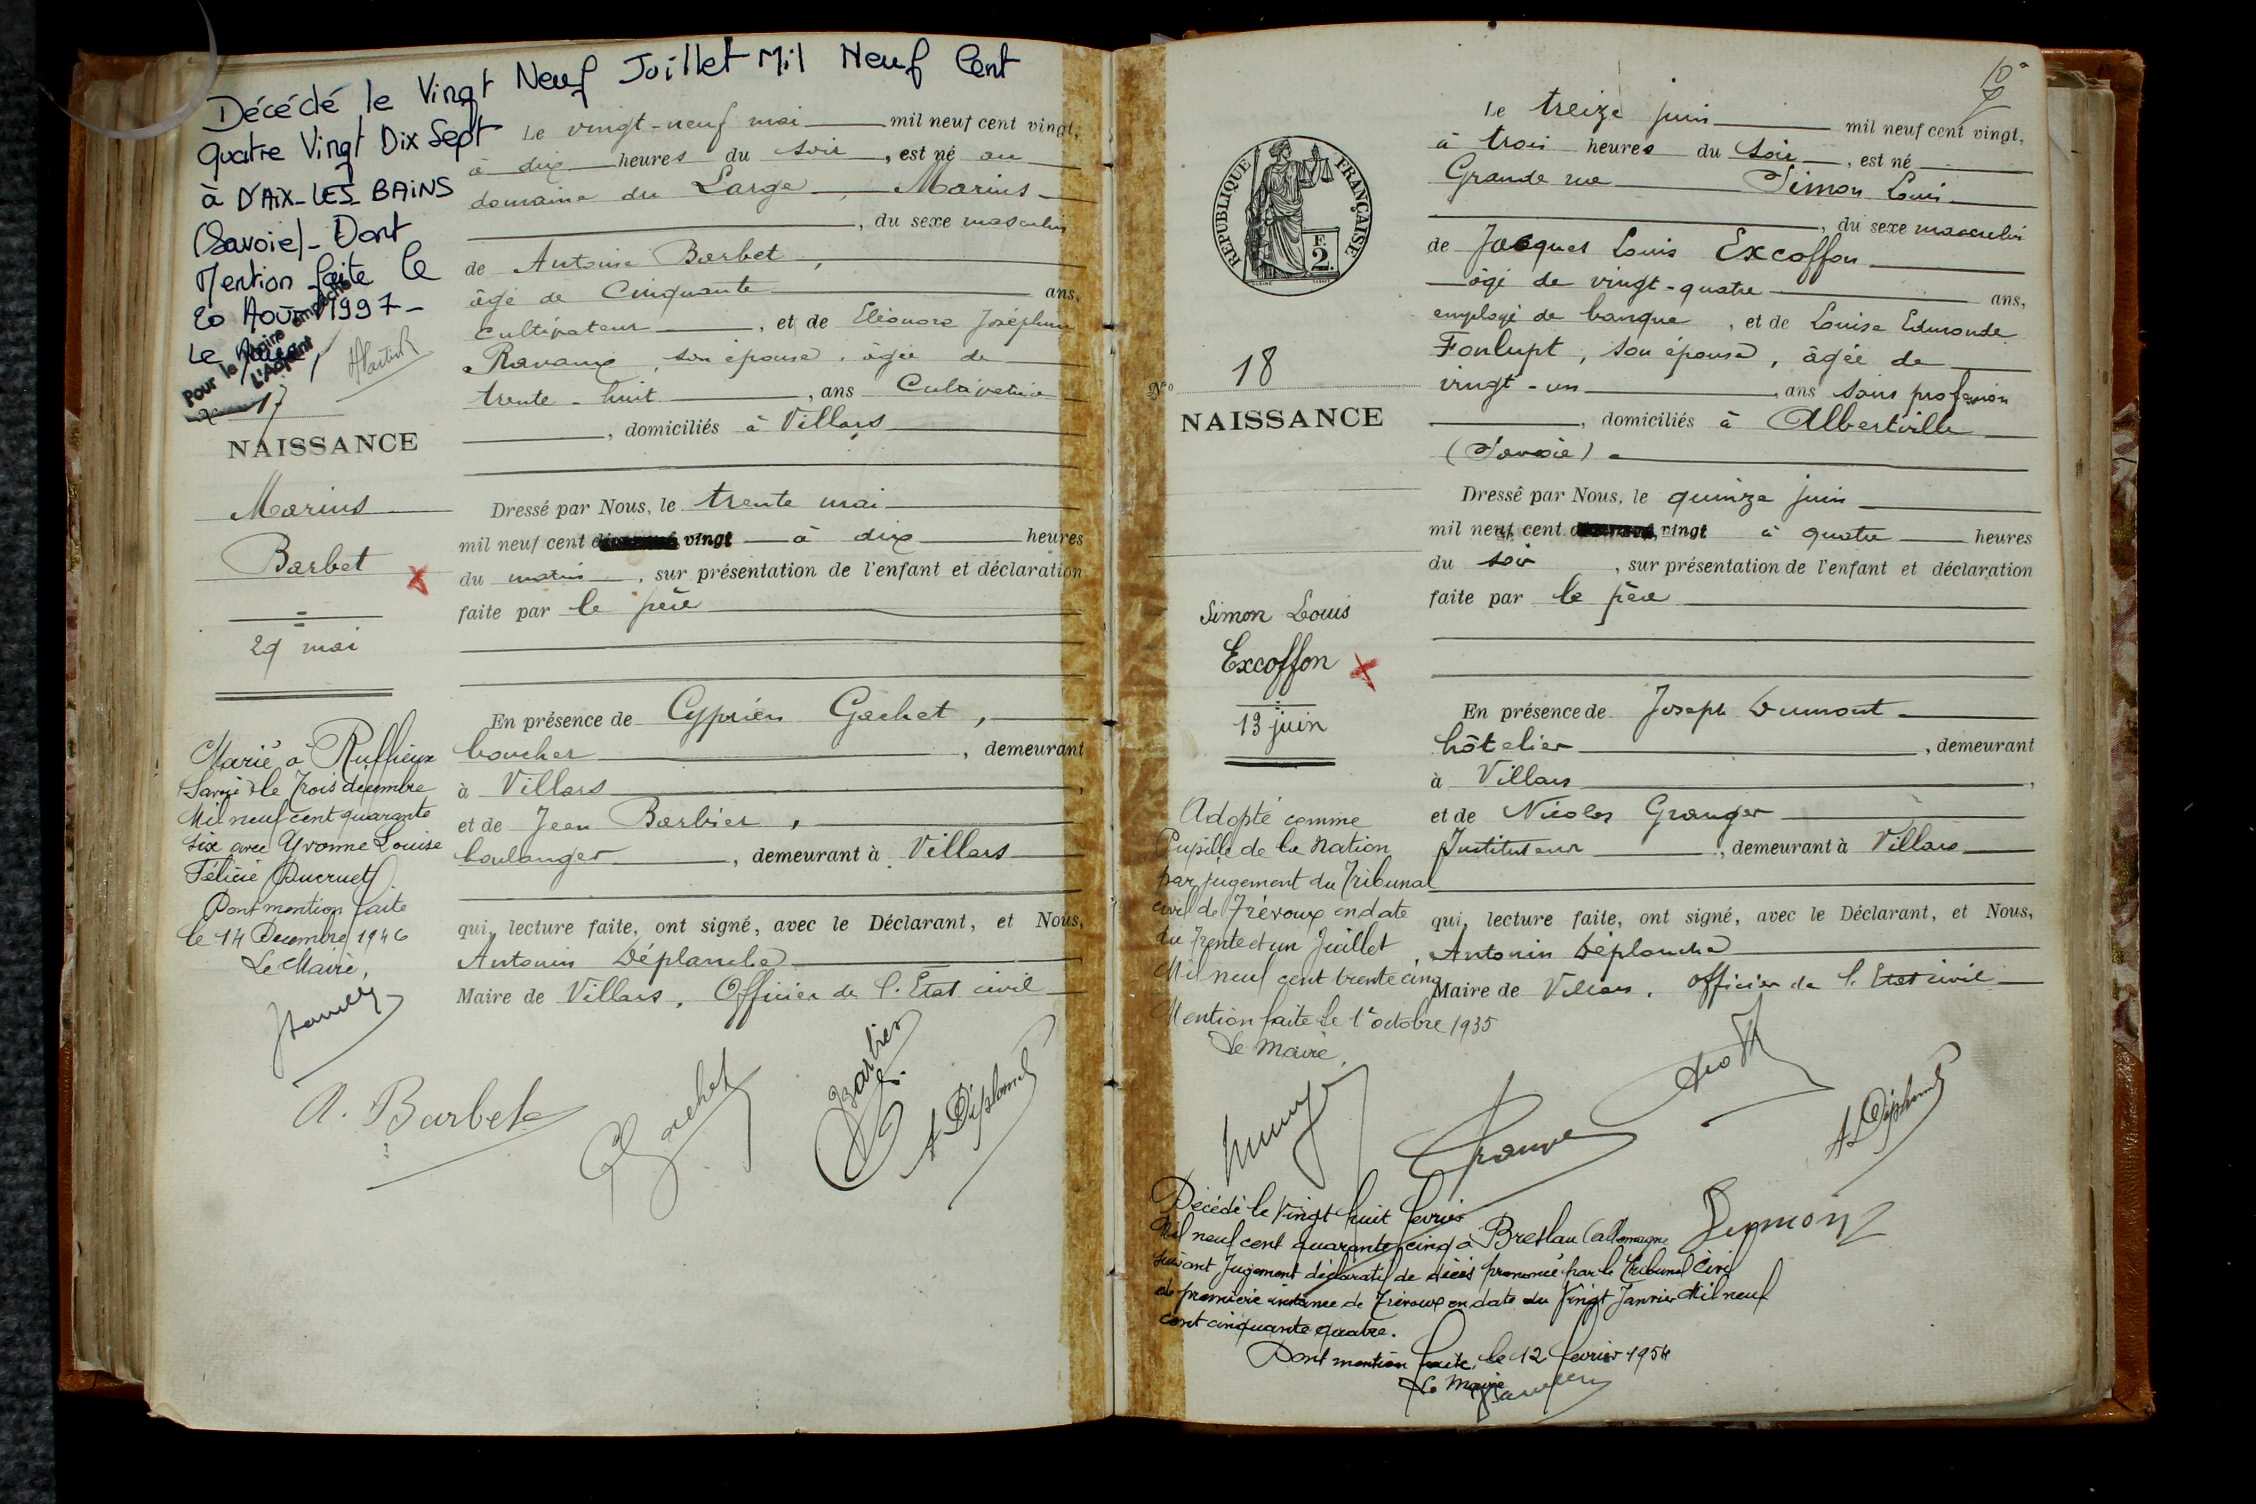 Décédé le Vingt Neuf Juillet Mil Neuf Cent
Quatre Vingt Dix Sept
à D'AIX-LES-BAINS
(Savoie)- Dont
Mention faite le
20 Août 1997-
Le Maire
Pour le Maire empêché
L'Adjoint
17
NAISSANCE
Marius
Barbet
29 mai
Marié à Ruffieux
(Savoie) le Trois décembre
Mil neuf cent quarante
six avec Yvonne Louise
Félicie Ducruet
Dont mention faite
le 14 Décembre 1946
Le Maire,
Le vingt-neuf mai mil neuf cent vingt,
à dix heures du soir, est né au
domaine du Large, Marius
, du sexe masculin
de Antoine Barbet,
âgé de Cinquante ans,
Cultivateur, et de Eléonore Joséphine
Ravaux, son épouse, âgée de
trente-huit, ans Cultivatrice
, domiciliés à Villars
Dressé par Nous, le trente mai
mil neuf cent vingt à dix heures
du matin, sur présentation de l'enfant et déclaration
faite par le père
En présence de Cyprien Gachet,
boucher, demeurant
à Villars,
et de Jean Barbier,
boulanger, demeurant à Villars
qui, lecture faite, ont signé, avec le Déclarant, et Nous,
Antonin Déplanche
Maire de Villars, Officier de l'Etat civil
A. Barbet
Gachet
Barbier
A Déplanche
RÉPUBLIQUE FRANÇAISE
F.
2.
N° 18
NAISSANCE
Simon Louis
Excoffon
13 juin
Adopté comme
Pupille de la Nation
par jugement du Tribunal
civil de Trévoux en date
du Trente et un Juillet
Mil neuf cent trente cinq
Mention faite le 1er octobre 1935
Le Maire,
Le treize juin mil neuf cent vingt,
à trois heures du soir, est né
Grande rue Simon Louis
, du sexe masculin
de Jacques Louis Excoffon
âgé de vingt-quatre ans,
employé de banque, et de Louise Edmonde
Fonlupt, son épouse, âgée de
vingt-un, ans sans profession
, domiciliés à Albertville
(Savoie)
Dressé par Nous, le quinze juin
mil neuf cent vingt à quatre heures
du soir, sur présentation de l'enfant et déclaration
faite par le père
En présence de Joseph Dumont
hôtelier, demeurant
à Villars,
et de Nicolas Granger
Instituteur, demeurant à Villars
qui, lecture faite, ont signé, avec le Déclarant, et Nous,
Antonin Déplanche
Maire de Villars, Officier de l'Etat civil
Granger
A Déplanche
Dumont
Décédé le Vingt huit février
Mil neuf cent quarante cinq à Breslau (allemagne
suivant Jugement déclaratif de décès prononcé par le Tribunal Civil
de première instance de Trévoux en date du Vingt Janvier Mil neuf
cent cinquante quatre.
Dont mention faite, le 12 février 1954
Le Maire